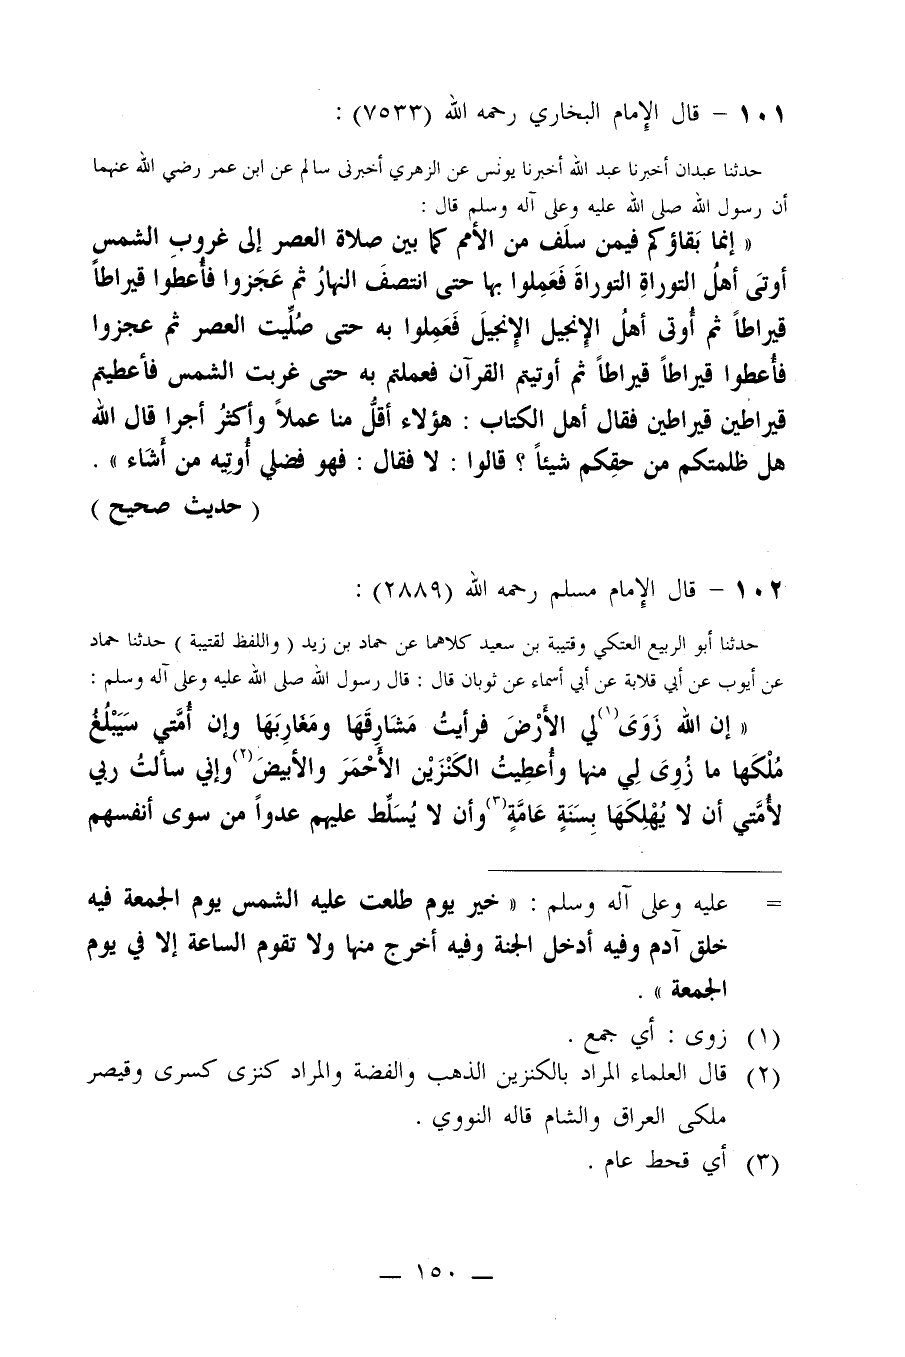 ١٠١ – قال الإمام البخاري رحمه الله (٧٥٣٣) :
حدثنا عبدان أخبرنا عبد الله أخبرنا يونس عن الزهري أخبرنى سالم عن ابن عمر رضي الله عنهما
أن رسول الله صلى الله عليه وعلى آله وسلم قال :
« إنما بَقاؤكم فيمن سلَف من الأمم كما بين صلاة العصر إلى غروبِ الشمس
أوتىَ أهلُ التوراةِ التوراةَ فَعَمِلوا بها حتى انتصفَ النهارُ ثم عَجَزوا فأُعطوا قيراطاً
قيراطاً ثم أُوتى أهلُ الإنجيل الإنجيلَ فَعَمِلوا به حتى صُلِّيت العصر ثم عجزوا
فأُعطوا قيراطاً قيراطاً ثم أوتيتم القرآن فعملتم به حتى غربت الشمس فأعطيتم
قيراطين قيراطين فقال أهل الكتاب : هؤلاء أقلُّ منا عملاً وأكثرُ أجرا قال الله
هل ظلمتكم من حقِكم شيئاً ؟ قالوا : لا فقال : فهو فضلي أُوتِيه من أَشَاء » .
( حديث صحيح )
١٠٢ – قال الإمام مسلم رحمه الله (٢٨٨٩) :
حدثنا أبو الربيع العتكي وقتيبة بن سعيد كلاهما عن حماد بن زيد ( واللفظ لقتيبة ) حدثنا حماد
عن أيوب عن أبي قلابة عن أبي أسماء عن ثوبان قال : قال رسول الله صلى الله عليه وعلى آله وسلم :
« إن الله زَوَى(١)لي الأَرْضَ فرأيتُ مَشَارِقَهَا ومَغَارِبَهَا وإن أُمَّتي سَيَبْلُغُ
مُلْكَها ما زُوِىَ لِي منها وأُعطِيتُ الكَنْزَيْن الأَحْمَرَ والأبيضَ(٢)وإني سألتُ ربي
لأُمَّتي أن لا يُهْلِكَهَا بِسَنَةٍ عَامَّةٍ(٣)وأن لا يُسَلِّط عليهم عدواً من سوى أنفسهم
= عليه وعلى آله وسلم : « خير يوم طلعت عليه الشمس يوم الجمعة فيه
خلق آدم وفيه أدخل الجنة وفيه أخرج منها ولا تقوم الساعة إلا في يوم
الجمعة » .
(١) زوى : أي جمع .
(٢) قال العلماء المراد بالكنزين الذهب والفضة والمراد كنزى كسرى وقيصر
ملكى العراق والشام قاله النووي .
(٣) أي قحط عام .
— ١٥٠ —